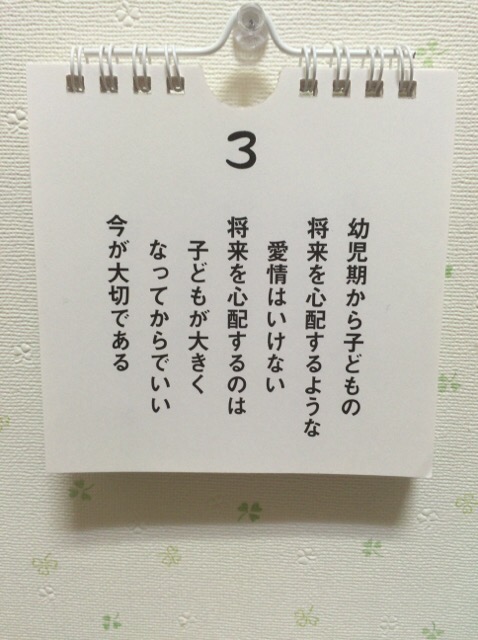 3
幼児期から子どもの
将来を心配するような
愛情はいけない
将来を心配するのは
子どもが大きく
なってからでいい
今が大切である